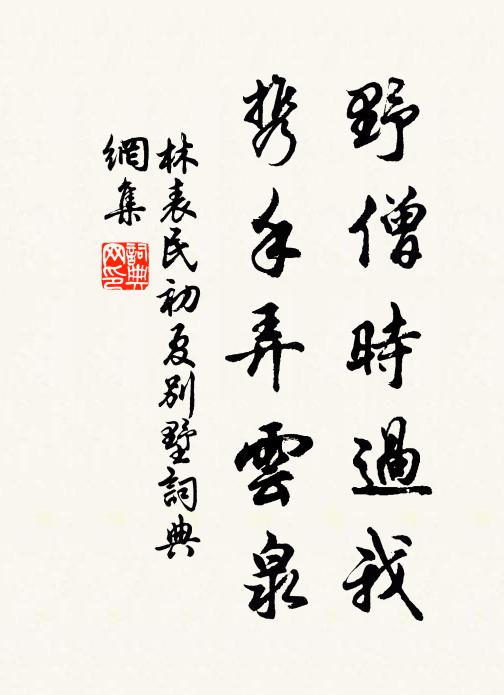 野僧時過我
携手弄雲泉
林表民初夏別墅詞典
網集
詞典網印